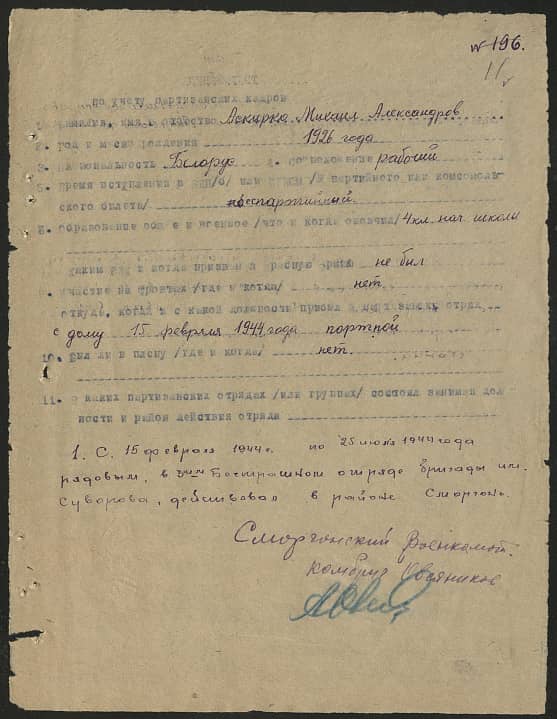 № 196.
11
ЛИЧНЫЙ ЛИСТ
по учету партизанских кадров
1. Фамилия, имя и отчество Аскирка Михаил Александров
2. год и место рождения 1926 года
3. национальность Белорус 4. соцположение рабочий
5. время вступления в ВКП/б/ или ВЛКСМ / партийного или комсомоль-
ского билета/ беспартийный
6. образование общее и военное /что и когда окончил/ 4 кл. нач. школы
каким РВК и когда призван в красную армию не был
участие на фронтах /где и когда/ нет.
откуда, когда и с какой должности прибыл в партизанск. отряд
с дому 15 февраля 1944 года портной
10. Был ли в плену /где и когда/ нет.
11. в каких партизанских отрядах /или группах/ состоял занимал дол-
ности и район действия отряда
1. С. 15 февраля 1944 г. по 25 июня 1944 года
рядовым, в Бесстрашном отряде бригады им.
Суворова, действовал в районе Сморгонь.
Сморгонский Военкомат.
Комбриг Овсяников